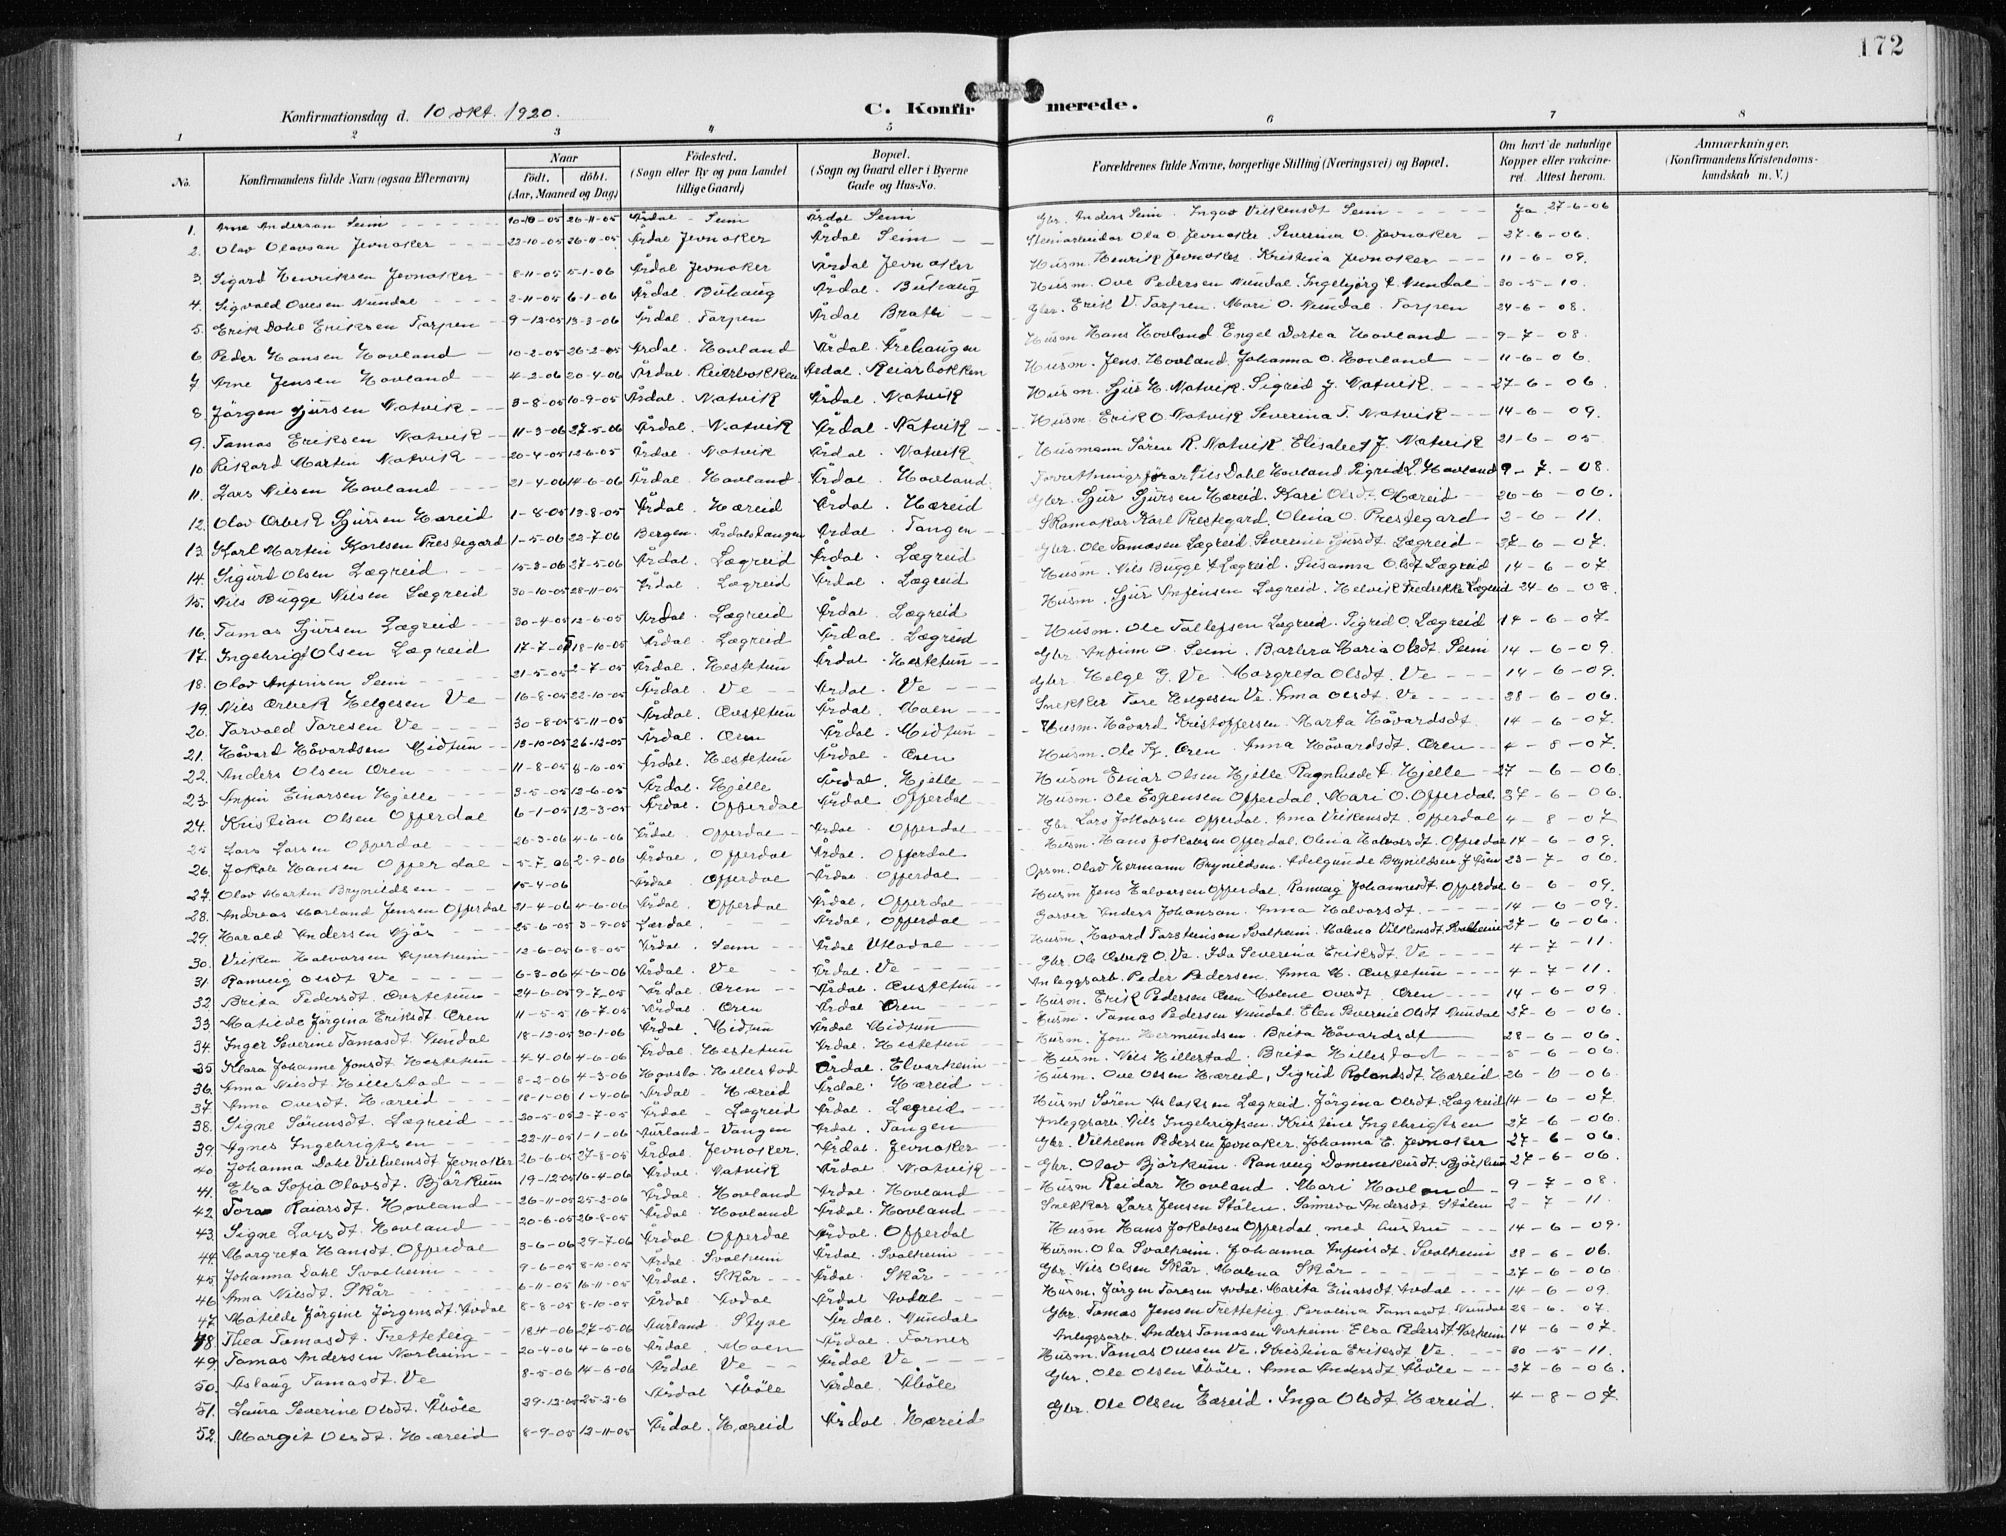 172
Konfirmationsdag d. 10 okt. 1920.
C. Konfirmerede.
1 2 3 4 5 6 7 8
No. Konfirmandens fulde Navn (ogsaa Efternavn) Naar födt. döbt. (Aar, Maaned og Dag) Födested. (Sogn eller By og paa Landet tillige Gaard) Bopæl. (Sogn og Gaard eller i Byerne Gade og Hus-No. Forældrenes fulde Navne, borgerlige Stilling (Næringsvei) og Bopæl. Om havt de naturlige Kopper eller vakcineret Attest herom. Anmærkninger. (Konfirmandens Kristendomskundskab m. V.)
1. Arne Anderson Seim 10-10-05 26-11-05 Årdal Seim Årdal Seim Gbr. Anders Seim Vilkensdt Seim Ja 27-6-06
2. Olav Olavsan Jevnaker 22-10-05 26-11-05 Årdal Jevnaker Årdal Seim Stenarbeidar Ola O. Jevnaker. Severina O. Jevnaker 27-6-06.
3. Sigard Henriksen Jevnaker 8-11-05 5-1-06 Årdal Jevnaker Årdal Jevnaker Husm. Henrik Jevnaker Kristina Jevnaker 11-6-09.
4. Sigvald Ovesen Nundal 2-11-05 6-1-06 Årdal. Buhaug Årdal. Buhaug Husm. Ove Pedersen Nundal. Ingebjörg Nundal 30-5-10.
5. Erik Dahl Eriksen Tarpen 9-12-05 13-3-06 Årdal. Tarpen Årdal Gbr. Erik V. Tarpen. Mari O. Nundal Tarpen 24-6-08.
6 Peder Hansen Hovland 10-2-05 26-2-05 Årdal. Hovland Årdal Årehaugen Husm Hans Hovland Engel Dortea Hovland 9-7-08.
7 Arne Jensen Hovland 4-2-06 20-4-06 Årdal. Reiarbokken Årdal. Reiarbokken Husm. Jens Hovland. Johanna O. Hovland 11-6-06.
8. Jörgen Sjursen Natvik 3-8-05 10-9-05 Årdal. Natvik Årdal. Natvik Husm. Sjur H. Natvik. Sigrid J. Natvik. 27-6-06.
9. Tamas Eriksen Natvik 11-3-06 27-5-06 Årdal. Natvik Årdal. Natvik Husm. Erik O. Natvik Severina T. Natvik 14-6-09.
10 Rikard Martin Natvik 20-4-05 12-6-05 Årdal. Natvik Årdal. Natvik Husmann Sören R. Natvik Elisabet J. Natvik 21-6-05
11. Lars Nilsen Hovland 21-4-06 14-6-06 Årdal. Hovland. Årdal. Hovland. Forretningsförar Nils Dahl Hovland Sigrid L. Hovland 9-7-08.
12. Olav Orbek Sjursen Hæreid 1-8-05 13-8-05 Årdal. Hæreid Årdal. Hæreid Gbr. Sjur Sjursen Hæreid. Kari Olsdt. Hæreid 26-6-06.
13. Karl Martin Karlsen Prestegard 1-5-06 22-7-06 Bergen. Årdalstangen Årdal. Tangen Skomakar Karl Prestegard, Olina O. Prestegard 2-6-11.
14. Sigurd Olsen Lægreid 15-3-06 27-5-06 Årdal. Lægreid Årdal. Lægreid Gbr. Ole Tamasen Lægreid. Severine Sjursdt. Lægreid 27-6-07.
15. Nils Bugge Nilsen Lægreid 30-10-05 28-11-05 Årdal. Lægreid Årdal. Lægreid Husm. Nils Bugge Lægreid. Susanna Olsdt Lægreid 14-6-07
16. Tamas Sjursen Lægreid 30-4-05 12-6-05 Årdal. Lægreid Årdal. Lægreid Husm. Sjur Anfinsen Lægreid. Helvik Fredrikke Lægreid 24-6-08.
17. Ingebrigt Olsen Lægreid 17-7-05 18-10-05 Årdal. Lægreid Årdal. Lægreid Husm. Ole Tollefsen Lægreid. Sigrid O. Lægreid 14-6-07.
18. Olav Anfinsen Seim 21-5-05 2-7-05 Årdal. Hestetun Årdal. Hestetun Gbr. Anfinn O. Seim. Barbra Maria Olsdt. Seim 14-6-09.
19. Nils Orbek Helgesen Ve 16-8-05 22-10-05 Årdal. Ve Årdal. Ve Gbr Helge G. Ve Margreta Olsdt. Ve 14-6-09.
20. Torvald Toresen Ve 30-8-05 5-11-05 Årdal. Oustetun Årdal. Moen Snekker Tore Helgesen Ve. Anna Olsdt. Ve 28-6-06.
21. Håvard Håvardsen Midtun 13-10-05 26-12-05 Årdal. Øren Årdal. Midtun Husm. Håvard Kristoffersen. Marta Håvardsdt. 14-6-07.
22. Anders Olsen Øren 11-8-05 8-10-05 Årdal. Hestetun Årdal. Øren Husm. Ole Øren. Anna Håvardsdt. Øren 4-8-07.
23. Anfin Einarsen Hjelle 3-5-05 12-6-05 Årdal. Hjelle Årdal. Hjelle Husm Einar Olsen Hjelle Ragnhilde Hjelle 27-6-06.
24. Kristian Olsen Offerdal 6-1-05 12-3-05 Årdal. Offerdal Årdal Offerdal Husm. Ole Espensen Offerdal. Mari O. Offerdal. 27-6-06.
25 Lars Larsen Offerdal 26-3-06 4-6-06 Årdal. Offerdal Årdal. Offerdal Gbr Lars Jakobsen Offerdal. Anna Vilkensdt. Offerdal 4-8-07
26. Jakob Hansen Offerdal 5-7-06 2-9-06 Årdal. Offerdal Årdal. Offerdal Husm. Hans Jakobsen Offerdal. Olina Halvorsdt. Offerdal 14-6-09.
27. Olav Martin Brynildsen 15-4-06 Årdal. Offerdal Årdal. Offerdal Opsm. Olav Hermann Brynildsen. Adelgunde Brynildsen. 23-7-06.
28. Andreas Marland Jensen Offerdal 21-4-06 4-6-06 Årdal. Offerdal Årdal. Offerdal Husm Jens Halvorsen Offerdal. Ranveig Johannesdt. Offerdal 6-6-09.
29. Harald Andersen 25-6-05 3-9-05 Lærdal. Årdal. Offerdal Garver Anders Johansen. Anna Halvarsdt. 14-6-09.
30. Vilken Halvorsen 12-6-05 6-8-05 Årdal. Seim Årdal Utladal Husm. Havard Torsteinson Svalheim. Malena Vilkensdt. Svalheim 27-6-06.
31. Ranveig Olsdt Ve 6-3-06 4-6-06 Årdal. Ve Årdal. Ve Gbr. Ole Orbek O. Ve. Ida Severina Eriksdt. Ve 4-7-11.
32. Brita Pedersdt. Oustetun 24-6-05 9-7-05 Årdal. Øren Årdal. Oustetun Anleggsarb. Peder Pedersen. Anna M. Oustetun 4-7-11.
33 Matilde Jörgina Eriksdt Øren 11-5-5 16-7-05 Årdal. Øren Årdal Øren Husm. Erik Pedersen Øren Malene Ovesdt Øren 14-6-09
34. Inger Severine Tamasdt. Nundal 18-12-05 30-1-06 Årdal. Midtun Årdal Midtun Husm. Tamas Pedersen Nundal. Elen Severine Olsdt Nundal 27-6-06.
35 Klara Johanne Jonsdt Hestetun 4-4-06 4-6-06 Årdal. Hestetun Årdal. Hestetun Husm. Jon Hermundsen. Brita Håvardsdt 28-6-06.
36. Anna Nilsdt. Hillestad 8-2-06 4-3-06 Hafslo. Hillestad Årdal. Elvarheim Husm. Nils Hillestad. Brita Hillestad 5-6-06.
37. Anna Ovesdt. Hæreid 18-1-06 1-4-06 Årdal. Hæreid Årdal. Hæreid Husm. Ove Olsen Hæreid, Sigrid Rolandsdt. Hæreid. 26-6-06.
38. Signe Sörensdt. Lægreid 20-5-05 2-7-05 Årdal - Lægreid Årdal. Lægreid Husm Sören Aslaksen Lægreid. Jörgina Olsdt. Lægreid 14-6-07
39. Agnes Ingebrigtsen 22-11-05 1-1-06 Aurland - Vangen Årdal. Tangen Anleggsarb. Nils Ingebrigtsen. Kristine Ingebrigtsen 27-6-06.
40. Johanna Dahl Vilhelmsdt Jevnaker 26-6-05 27-8-05 Årdal. Jevnaker. Årdal. Jevnaker Gbr. Vilhelm Pedersen Jevnaker. Johanna E. Jevnaker 27-6-06.
41. Elsa Sofia Olavsdt. Björkum 19-12-05 16-4-06 Årdal. Natvik Årdal. Natvik Gbr. Olav Björkum. Ranveig Björkum 27-6-06.
42. Tora Raiarsdt. Hovland 26-11-05 25-2-06 Årdal. Hovland Årdal. Hovland Husm Reidar Hovland. Mari Hovland 9-7-08.
43. Signe Larsdt. Hovland 20-6-05 26-8-05 Årdal. Hovland Årdal. Hovland Snekkar Lars Jensen Stölen. Andersdt. Stölen 2-7-11.
44. Margreta Hansdt. Offerdal 3-6-06 29-7-06 Årdal. Offerdal Årdal. Offerdal Husm Hans Jakobsen Offerdal med hustru 14-6-09.
45. Johanna Dahl Svalheim 9-6-05 8-10-05 Årdal. Svalheim Årdal. Svalheim Husm. Ola Svalheim. Johanna Anfinsdt. Svalheim 28-6-06.
46 Anna Nilsdt. Skår 6-11-05 16-11-05 Årdal. Skår Årdal. Skår Gbr. Nils Olsen Skår. Malena Skår 27-6-06
47. Matilde Jörgine Jörgensdt. Avdal 8-8-05 8-10-05 Årdal. Avdal Årdal Avdal Husm. Jörgen Toresen Avdal. Marita Einarsdt. Avdal 14-6-09.
48. Thea Tamasdt. Tretteteig 18-4-06 27-5-06 Aurland. Styve Årdal. Nundal Gbr. Tamas Jensen Tretteteig Tamasdt. Nundal 28-6-07.
49. Tamas Andersen Norheim 20-4-06 4-6-06 Årdal. Moen Årdal. Farnes Anleggsarb. Anders Tamasen Norheim. Elsa Pedersdt. Norheim 14-6-07.
50. Aslaug Tamasdt. Ve 8-5-06 14-6-06 Årdal. Ve Årdal Ve Husm. Tamas Ovesen Ve. Kristina Eriksdt. Ve. 30-5-11.
51. Laura Severine Olsdt. Åböle 29-12-05 25-2-6 Årdal Åböle Årdal. Åböle Gbr. Ole Olsen Åböle. Anna Andersdt. Åböle 27-6-06.
52. Margit Olsdt. Hæreid 8-9-05 12-11-05 Årdal. Hæreid Årdal. Hæreid Gbr. Ole Olsen Hæreid. Inga Olsdt. Hæreid. 4-8-07.